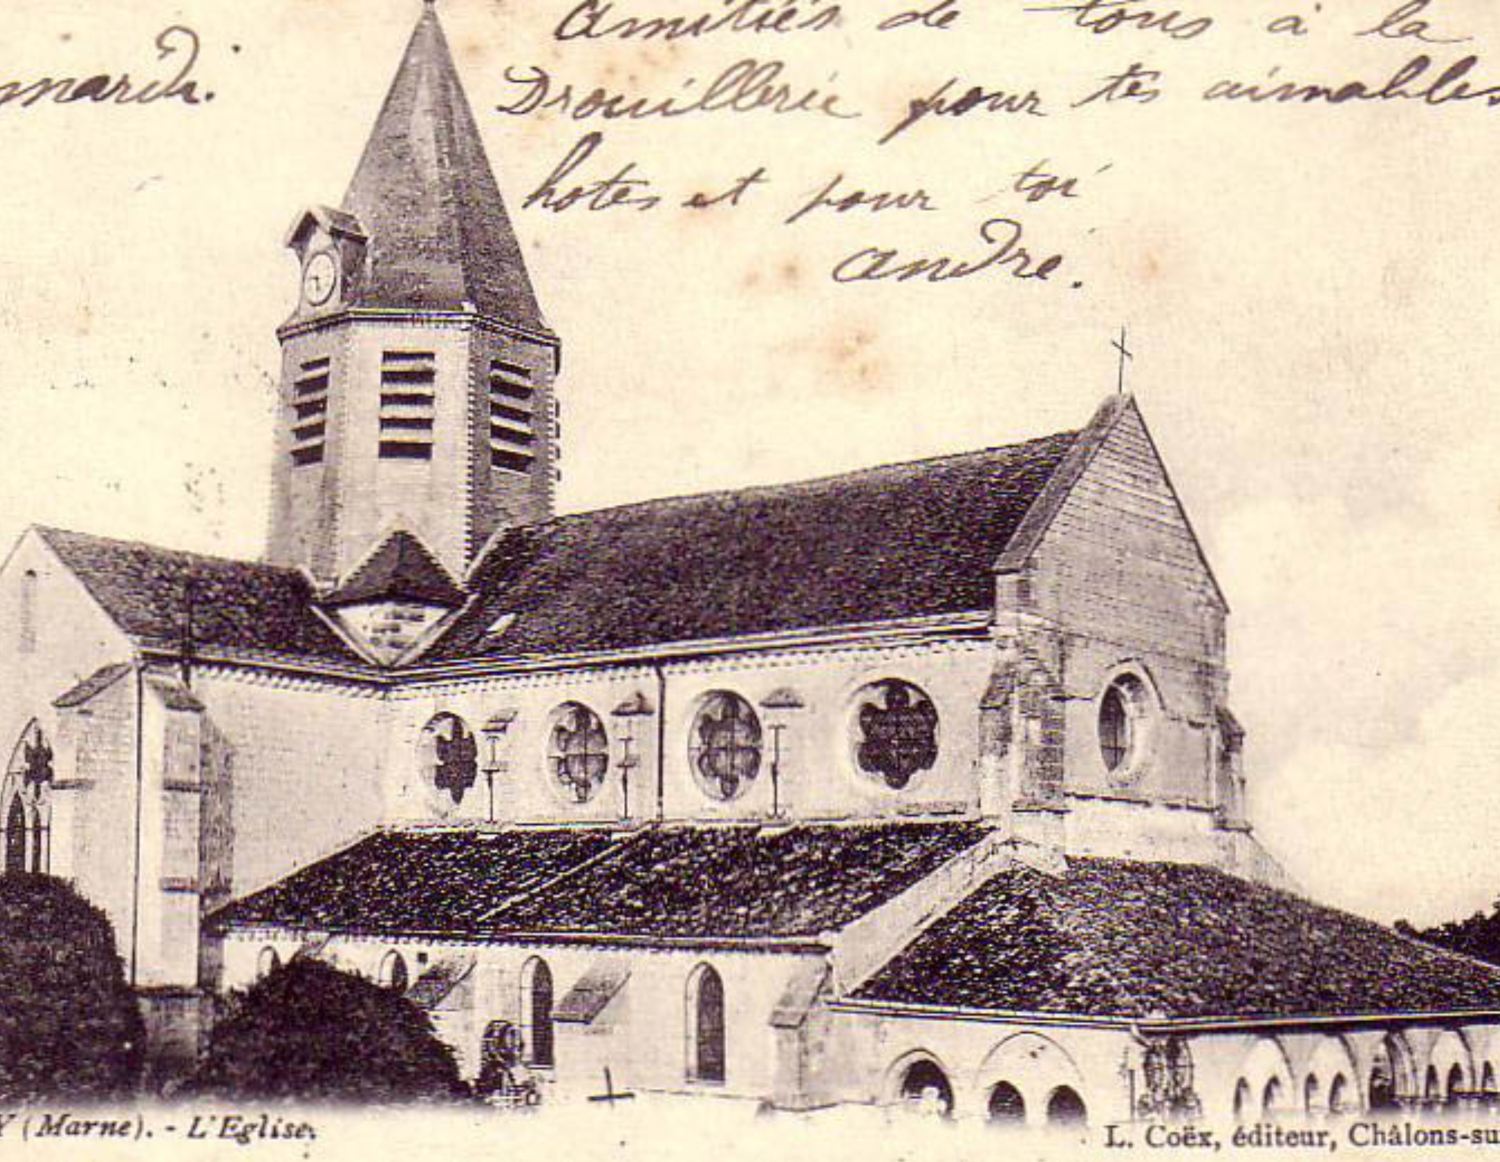 amitiés de tous à la
mardi.
Drouillerie pour tes aimables
hotes et pour toi
andré.
Y (Marne). - L'Eglise.
L. Coëx, éditeur, Châlons-su